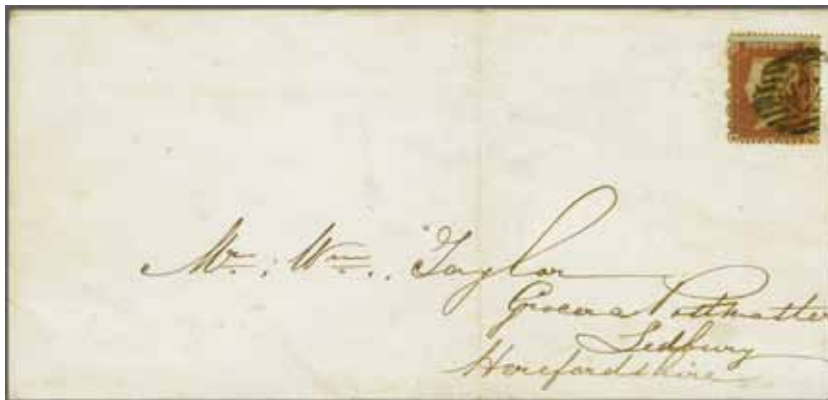 Mr. Wm. Taylor
Grocer & Postmaster
Ledbury
Herefordshire